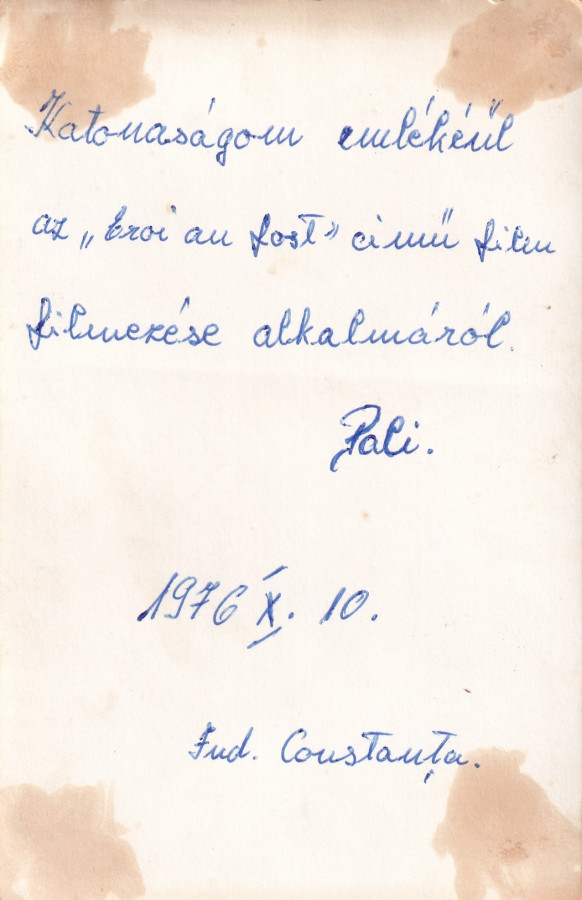 Katonaságom emlékéül
az „Eroi au fost” cimű film
filmezése alkalmáról.
Pali.
1976 X. 10.
Jud. Constanța.